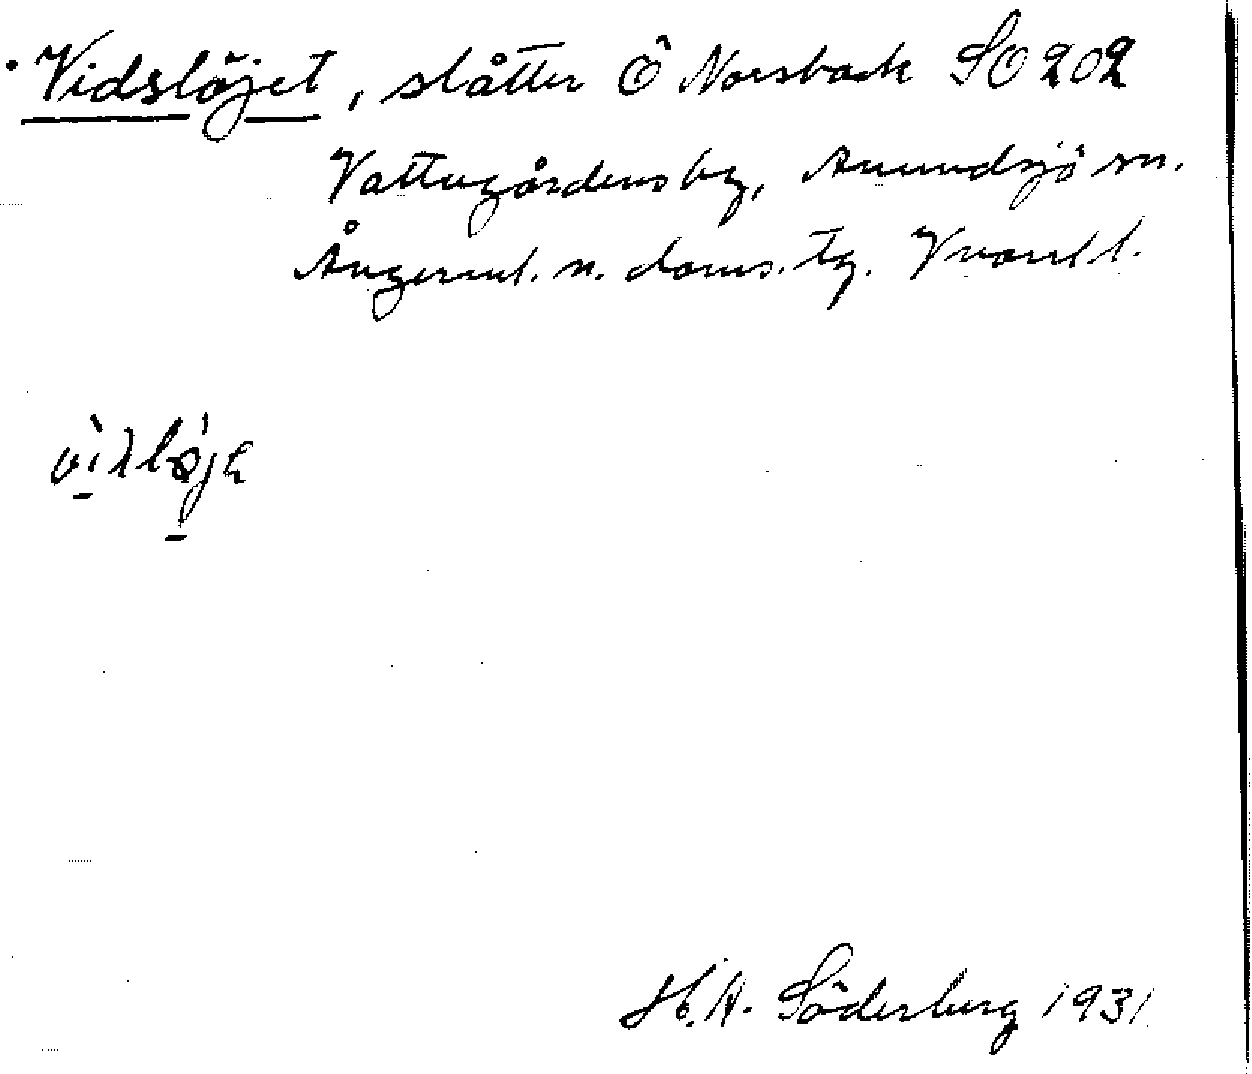 Vidslöjet, slåtter Ö Norsbäck SO 202
Vattugårdens by, Anundsjö sn.
Ångerml. n. doms. tg. Vnorrl l.
H. A. Söderberg 1931